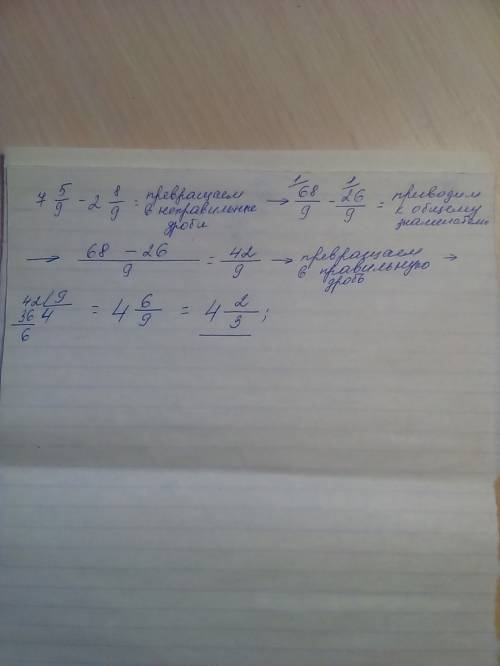 7 5/9 - 2 8/9 = превращаем в неправильные дроби → 68/9 (1) - 26/9 (1) = приводим к общему знаменателю
→ 68 - 26 / 9 = 42/9 → превращаем в правильную дробь →
42 | 9
36 4
6
= 4 6/9 = 4 2/3 ;